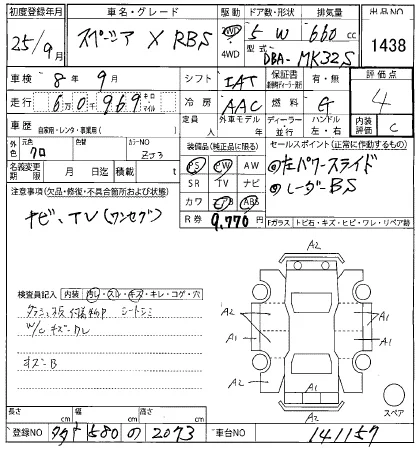 初度登録年月 車名・グレード 駆動 ドア数・形状 排気量 出品NO
25/9月 スペーシア X RBS 2WD 4WD 5 W 660 cc 1438
型式 DBA-MK32S
車検 8年 9月 シフト IAT 保証書 有・無 評価点
走行 6万0千969 キロ マイル 冷房 AAC 燃料 G 4
車歴 自家用・レンタ・事業用( ) 定員 人 外車モデル 年 ディーラー 並行 ハンドル 左・右 内装評価 C
外色 元色 クロ 色替 カラーNO ZJ3 装備品(純正品に限る) セールスポイント(正常に作動するもの)
名義変更期限 月 日迄 積載量 t PS PW AW ◎左パワースライド
注意事項(欠品・修復・不具合箇所および状態) SR TV ナビ ◎レーダーBS
ナビ、TV(ワンセグ) カワ エアB ABS
R券 9,770円 Fガラス トビ石・キズ・ヒビ・ワレ・リペア跡
A2
検査員記入 内装 ヨゴレ・スレ・キズ・キレ・コゲ・穴
シートシミ
A2 A1 A1
W/C キズ・ワレ
A1 A1
キズB
A2 A1 A2
A1
A2 スペア
長さ cm 幅 cm 高さ cm
登録NO 580 の 2073 車台NO 141157